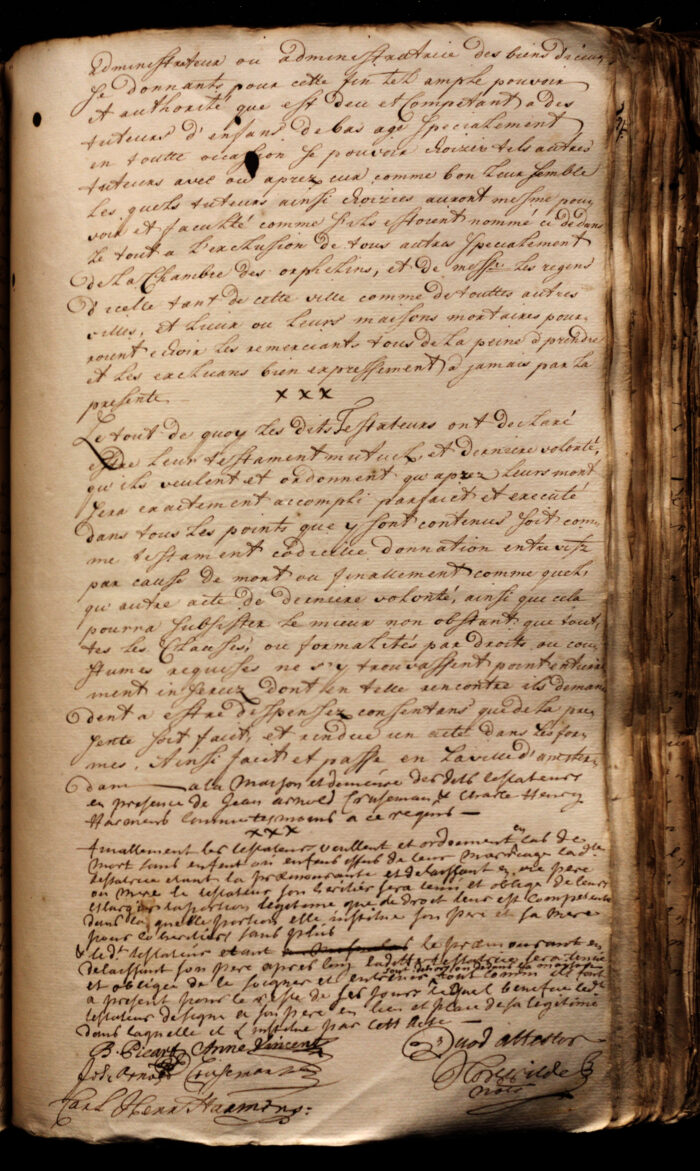 administrateur ou administratrice des biens d'iceux
se donnants pour cette fin tel ample pouvoir
et authorité que est deu et Compétant a des
tuteurs d'enfans de bas age specialement
en toutte occasion se pouvoir choizir tels autres
tuteurs avec ou aprez eux comme bon leur semble
les quels tuteurs ainsi choizies auront mesme pou-
voir et faculté comme s'ils estoient nommé ci dedans
le tout a l'exclusion de tous autres specialement
de la Chambre des orphelins, et de mess.rs les regens
d'icelle tant de cette ville comme de touttes autres
villes, et lieux ou leurs maisons mortaires pour-
roient echoir les remerciants tous de la peine d prendre
et les excluans bien expressement a jamais par la
presente x x x
Le tout de quoy les dits Testateurs ont declaré
estre leur testament mutuel et derniere volonté,
qu'ils veulent et ordonnent qu'aprez leurs mort
sera exactement accompli parfaict et executé
dans tous les points que y sont contenus soit com-
me testament codicille donnation entre vifs
par cause de mort ou finallement comme quel-
qu'autre acte de derniere volonté, ainsi que cela
pourra subsister le mieux non obstant que tout-
tes les Clauses, ou formalités par droits ou cou-
stumes requises ne s'y trouvassent point entiere
ment inserez dont en telle rencontre ils deman
dent a estre dispensez consentans que de la pre-
sente soit faict, et rendue un acte dans les for-
mes. Ainsi faict et passe en la ville d'amster-
dam a la Maison et demeure des dits testateurs
en presence de Jean Arnold Cruseman & Charle Henry
Harmens comme tesmoins a ce requis
x x x
finallement les testateurs veullent et ordonnent en cas de
Mort sans enfant ou enfens issus de leur marriage la d.te
testatrice etant la præmourante et delaissant pere
ou mere le testateur son heritier sera tenu et oblige de leurs
la portion legitime que de droit leur est Competente
dans la quelle portion elle institue son pere et sa mere
pour coheritiers sans plus
le d.t testateur etant le præmourant en
delaissant son pere apres luy, la ditte testatrice sera tenue
et obligee de le soigner et entretenir tout comm il font
a present pour le reste de ses jours lequel benefice le d.t
testateur designe a son pere en lieu et place de sa legitime
dans laquelle il l'institue par cett Acte
B. Picart Anne Vincent Quod attestor
Joh. Arnold Cruseman
Not.
Carl Henr Harmens